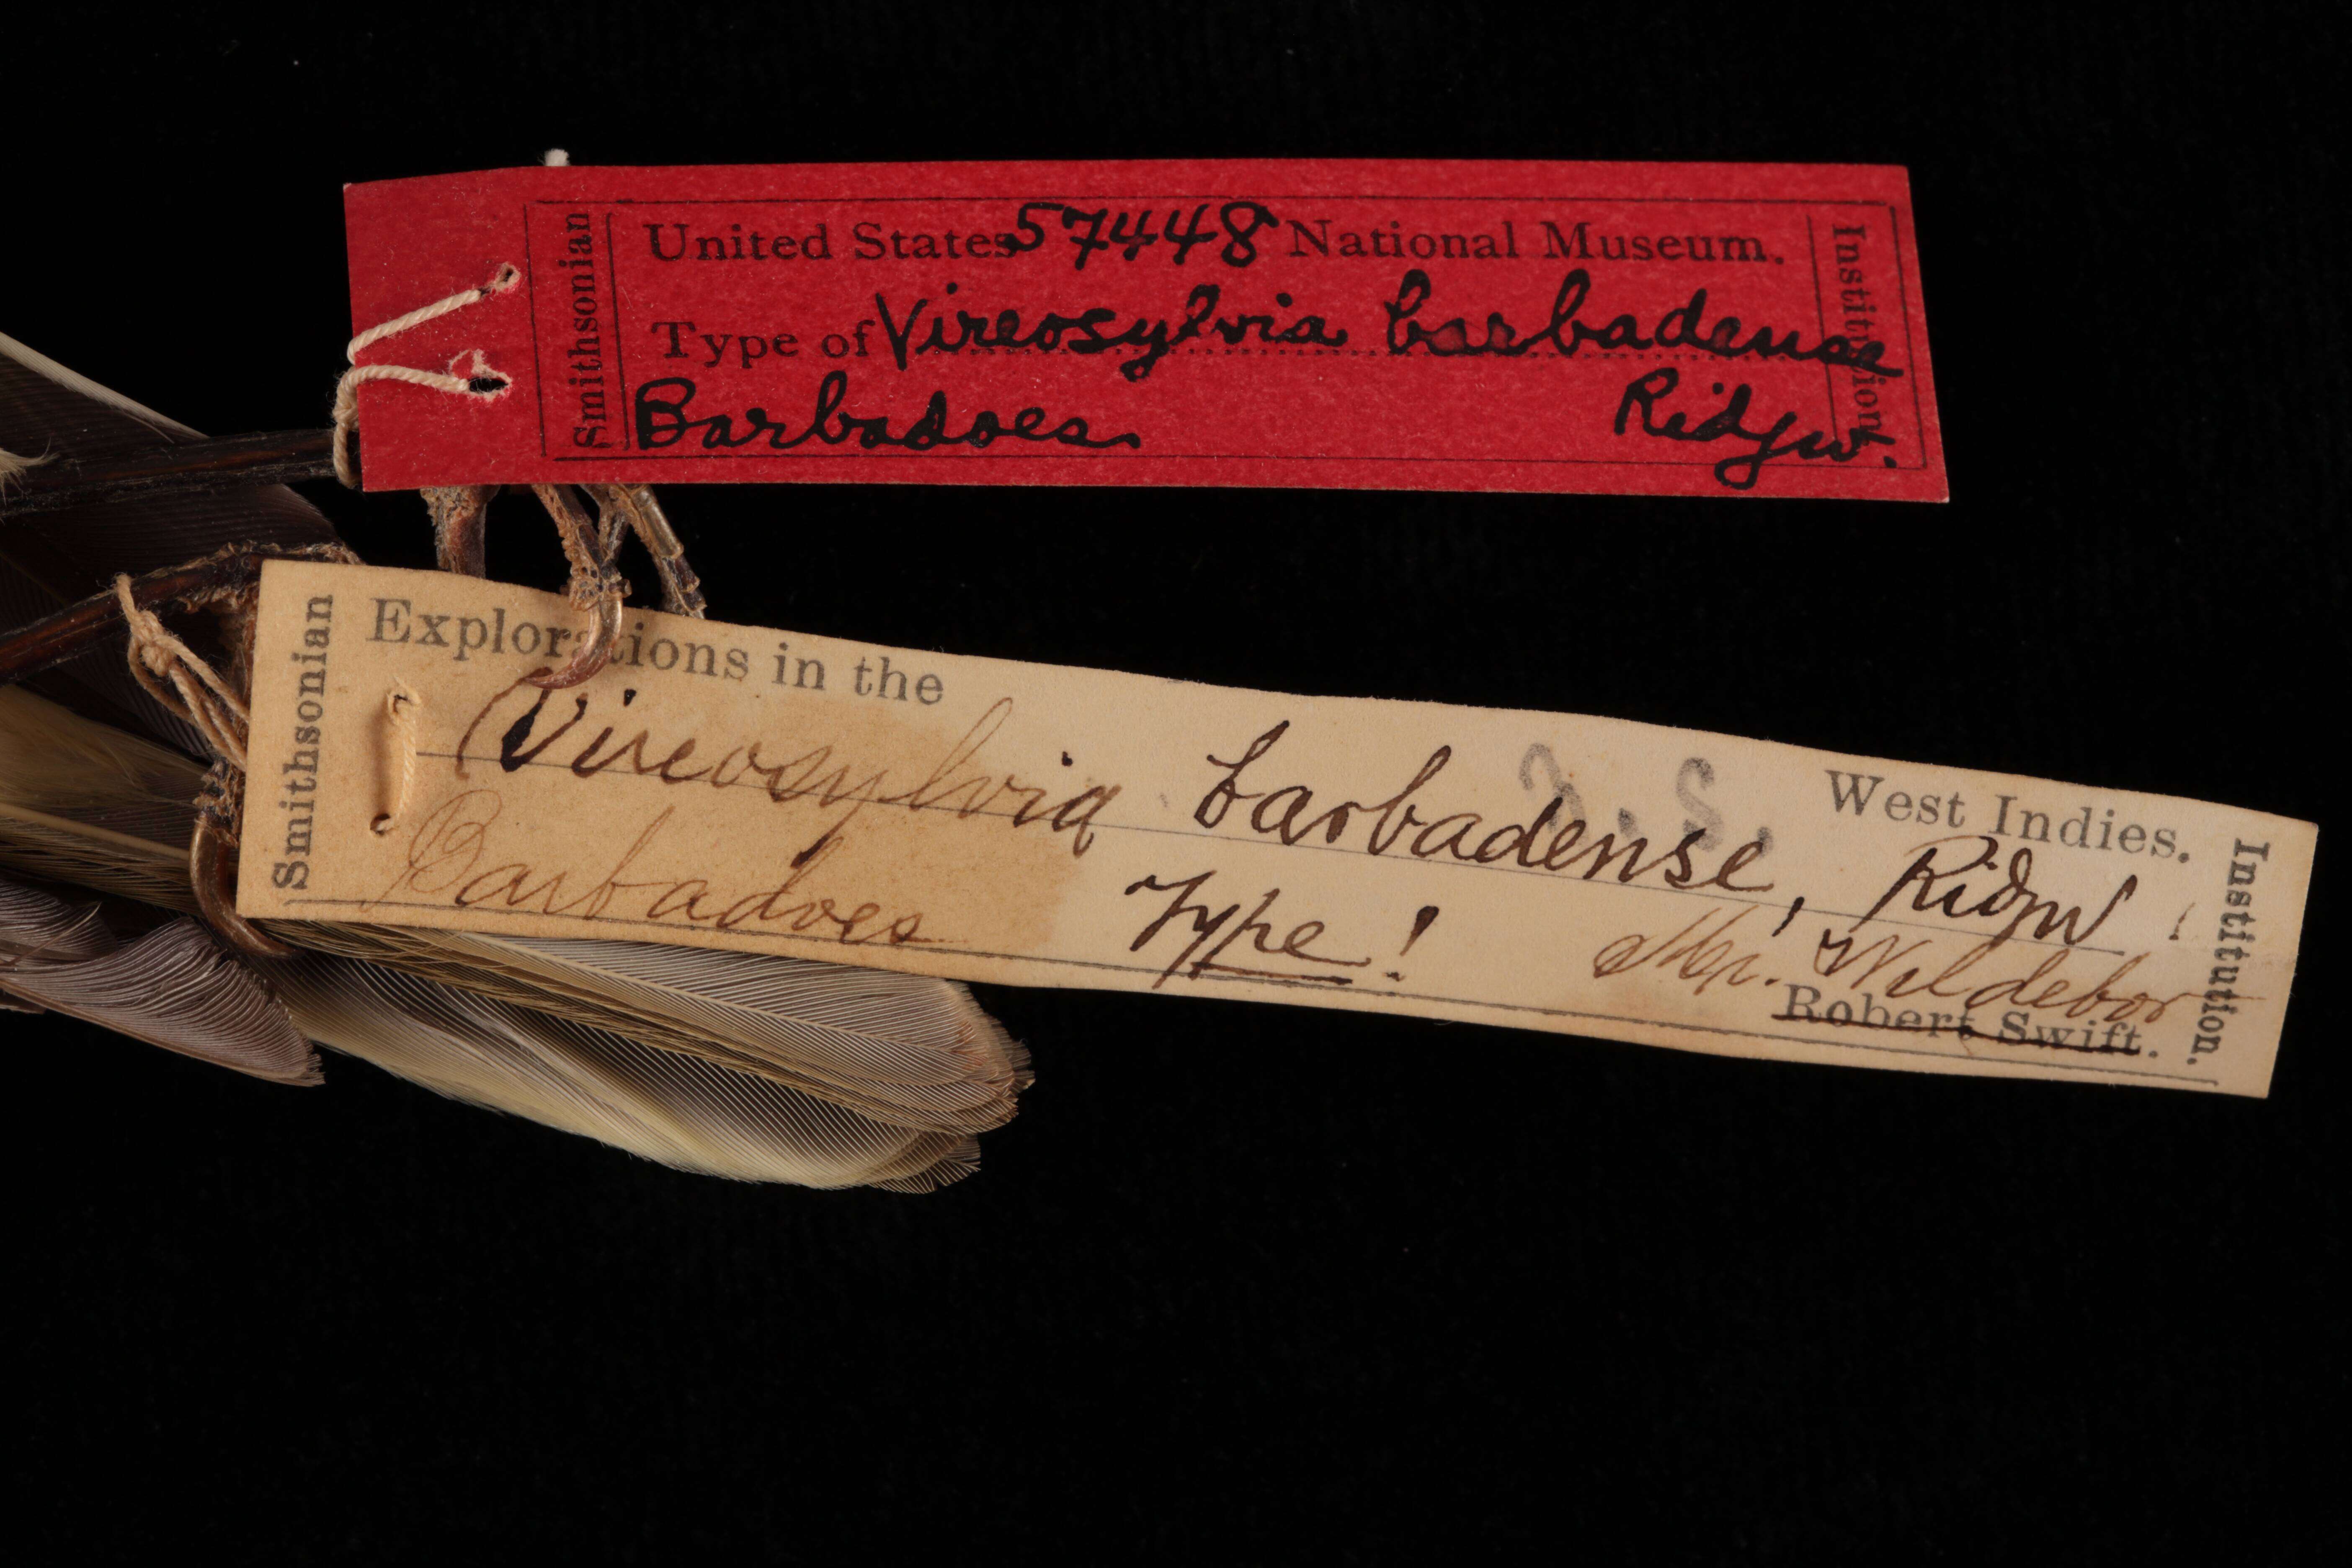 Smithsonian
United States 57448 National Museum.
Type of Vireosylvia barbadense
Barbadoes Ridgw.
Institution.
Smithsonian
Explorations in the West Indies.
Vireosylvia barbadense, Ridgw
Barbadoes Type! Mr. Wildeboor
Robert Swift.
Institution.